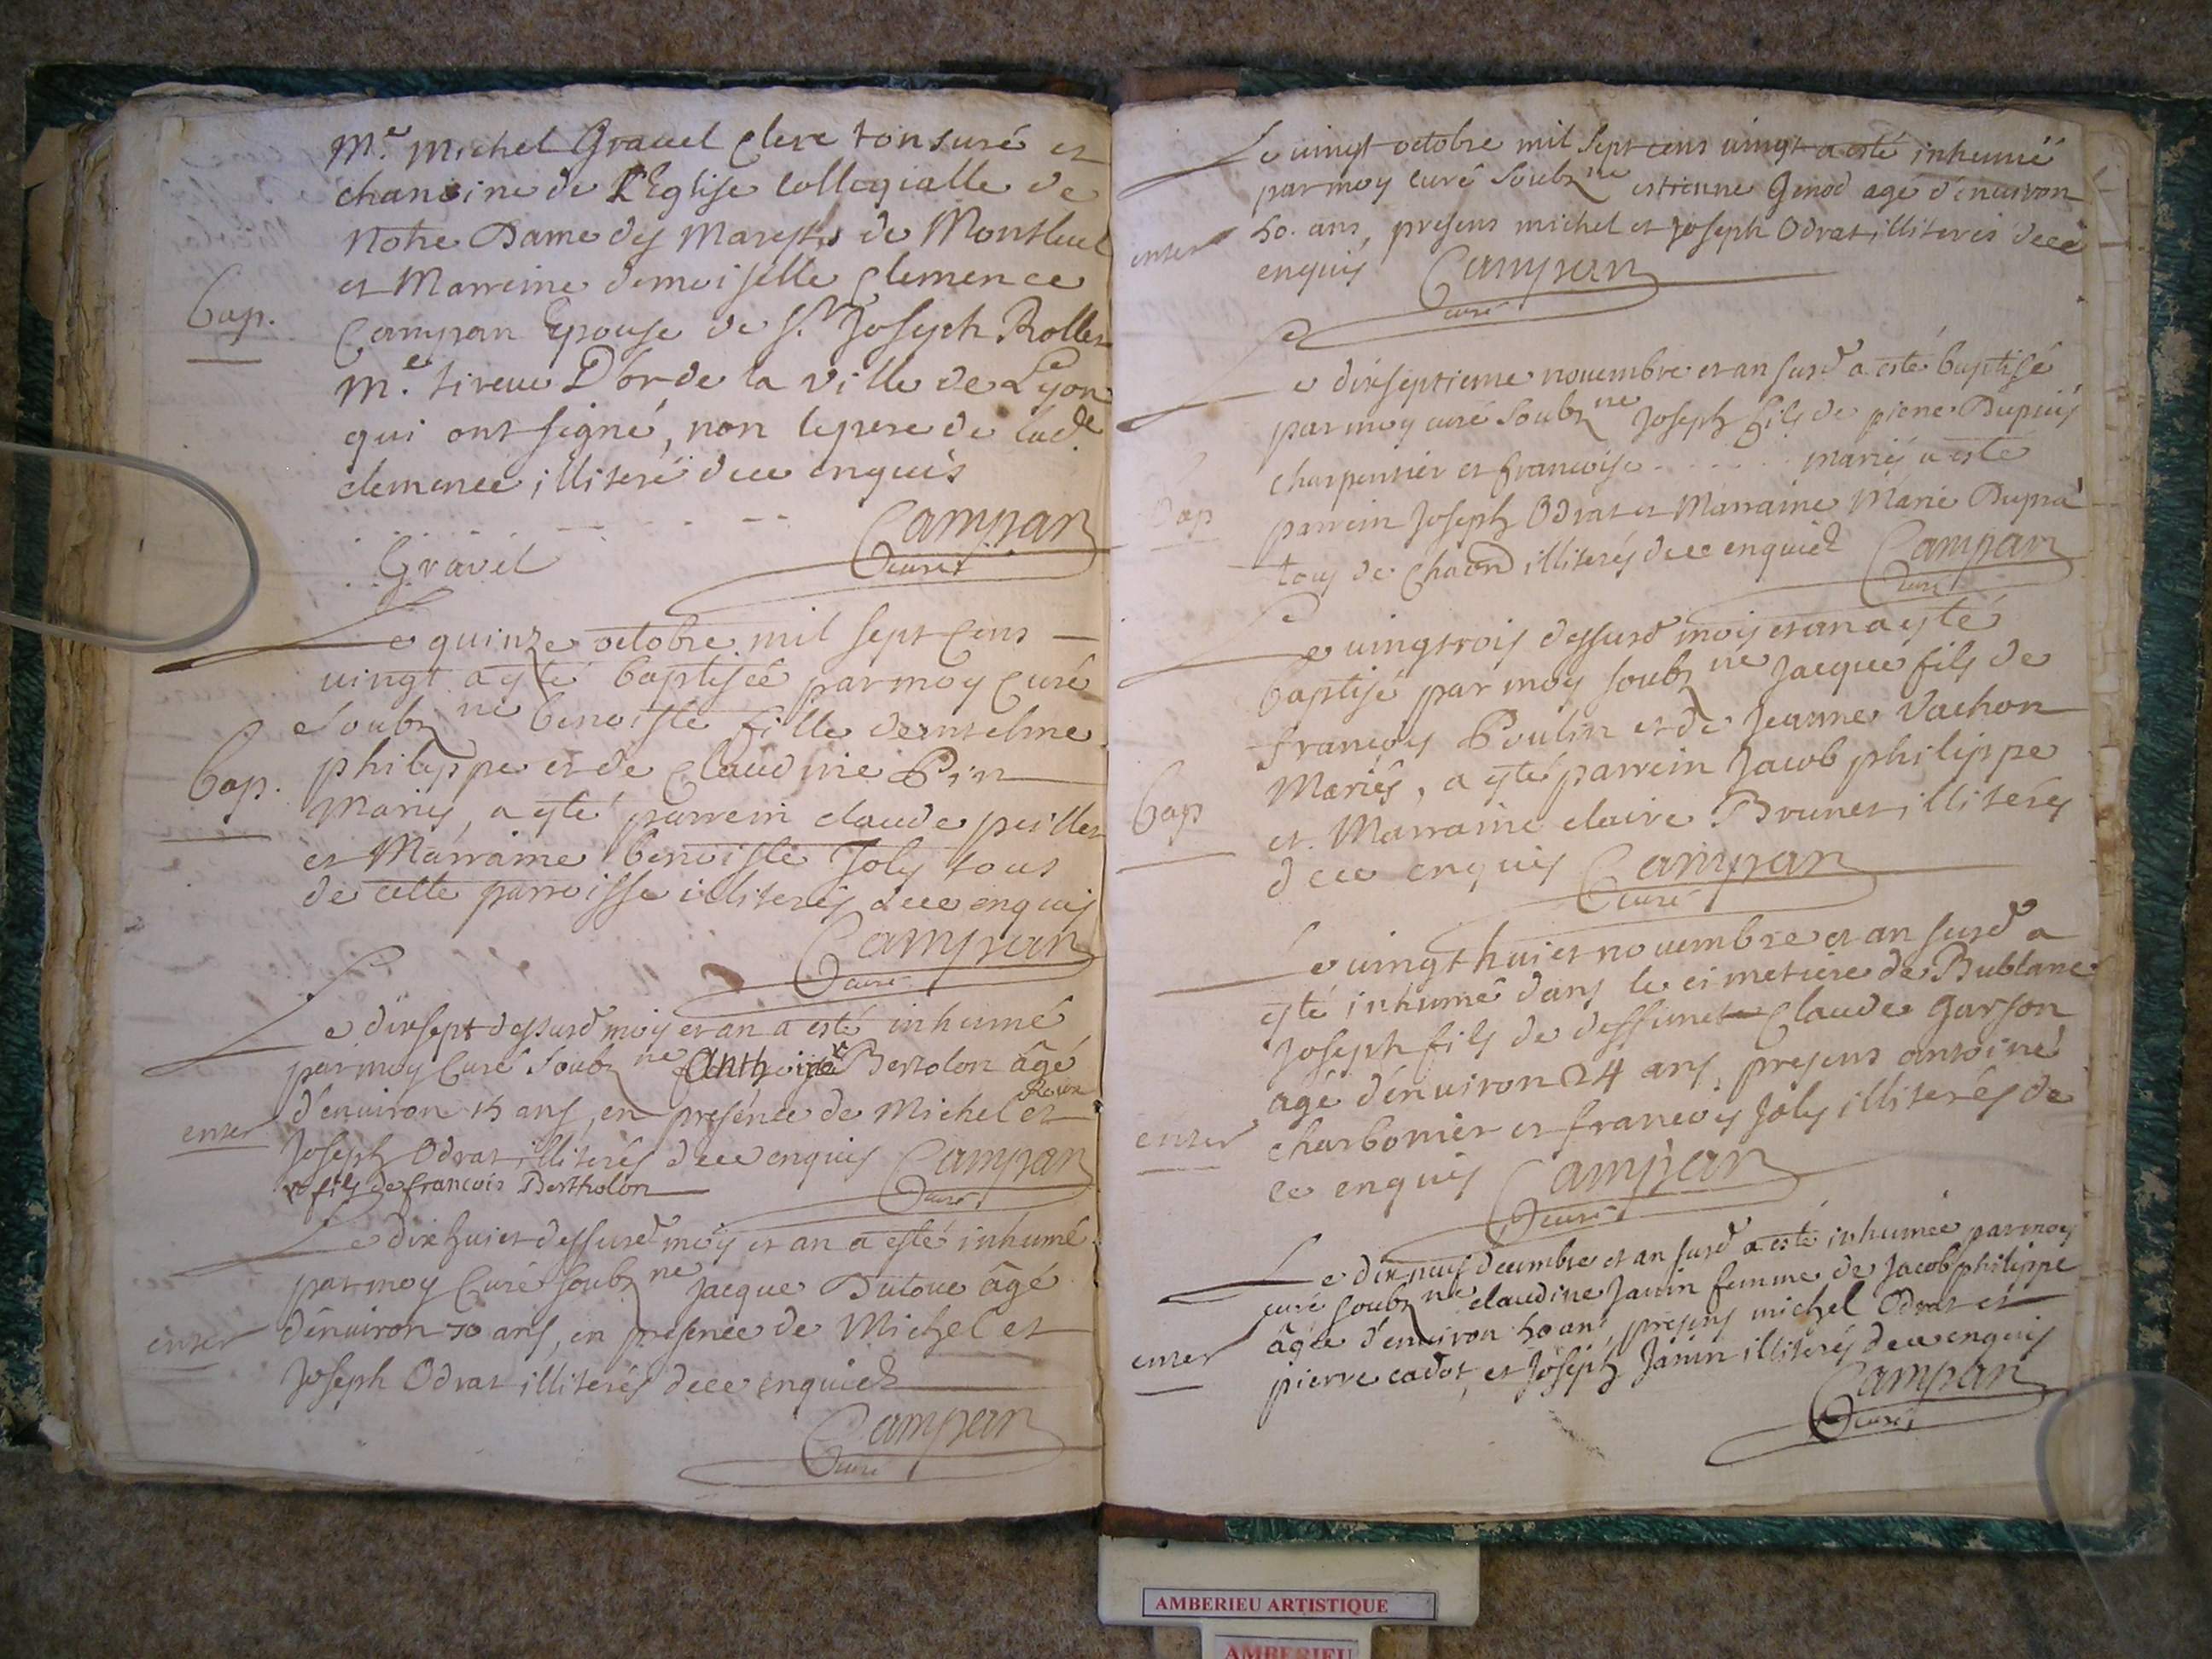 Mre Michel Gravel Clerc tonsuré et
chanoine de L'Eglise Collegialle de
Notre Dame des Marests de Montluel
et Marreine demoiselle Clemence
Bap.
Campan Epouse de Sr Joseph Rollet
Me tireur D'or de la ville de Lyon
qui ont signé, non le pere de lade
clemence illiteré de ce enquis
Campan
Gravel curé
Le quinze octobre mil sept cens
vingt a esté baptisée par moy Curé
Soubzne benoiste fille d'antelme
Bap. philippe et de Claudine Pin
Mariés, a esté parrein claude peillet
et Marraine benoiste Joly tous
de cette parroisse illiterés de ce enquis
Campan
curé
Le dixsept dessusd mois et an a esté inhumé
par moy Curé Soubzne Anthoine Bertolon âgé
d'environ 15 ans, en presence de Michel et
enter Joseph Odrat illiterés de ce enquis Campan
fils de francois Bertholon curé
Le dix huict dessusd mois et an a esté inhumé
par moy Curé Soubzne Jacque Dutour âgé
enter d'environ 70 ans, en presence de Michel et
Joseph Odrat illiterés de ce enquis
Campan
curé
Le vingt octobre mil sept cens vingt a esté inhumé
par moy curé Soubzne estienne Genod agé d'environ
enter 50. ans, presens michel et Joseph Odrat illiterés de ce
enquis Campan
curé
Le dixseptieme novembre et an susd a esté baptisé
par moy curé Soubzne Joseph fils de piere Dupuis
charpentier et francoise . . . . . mariés a esté
Bap parrein Joseph Odrat et Marraine Marie Dupra
tous de illiterés de ce enquis Campan
curé
Le vingtrois dessusd mois et an a esté
baptisé par moy soubzne Jacque fils de
françois Poulin et de Jeanne Vachon
Mariés, a esté parrein Jacob philippe
Bap et Marraine claire Brunet illiterés
de ce enquis Campan
curé
Le vingthuict novembre et an susd a
esté inhumé dans le cimetiere de Bublane
Joseph fils de deffunct Claude Garson
agé d'environ 24 ans, presens antoine
enter charbonier et francois Joly illiterés de
ce enquis Campan
curé
Le dix neuf decembre et an susd a esté inhumée par moy
curé soubzne claudine Janin femme de Jacob philippe
enter âgée d'environ 50 ans, presens michel Odrat et
pierre cadot, et Joseph Janin illiterés de ce enquis
Campan
curé
AMBERIEU ARTISTIQUE
AMBERIEU